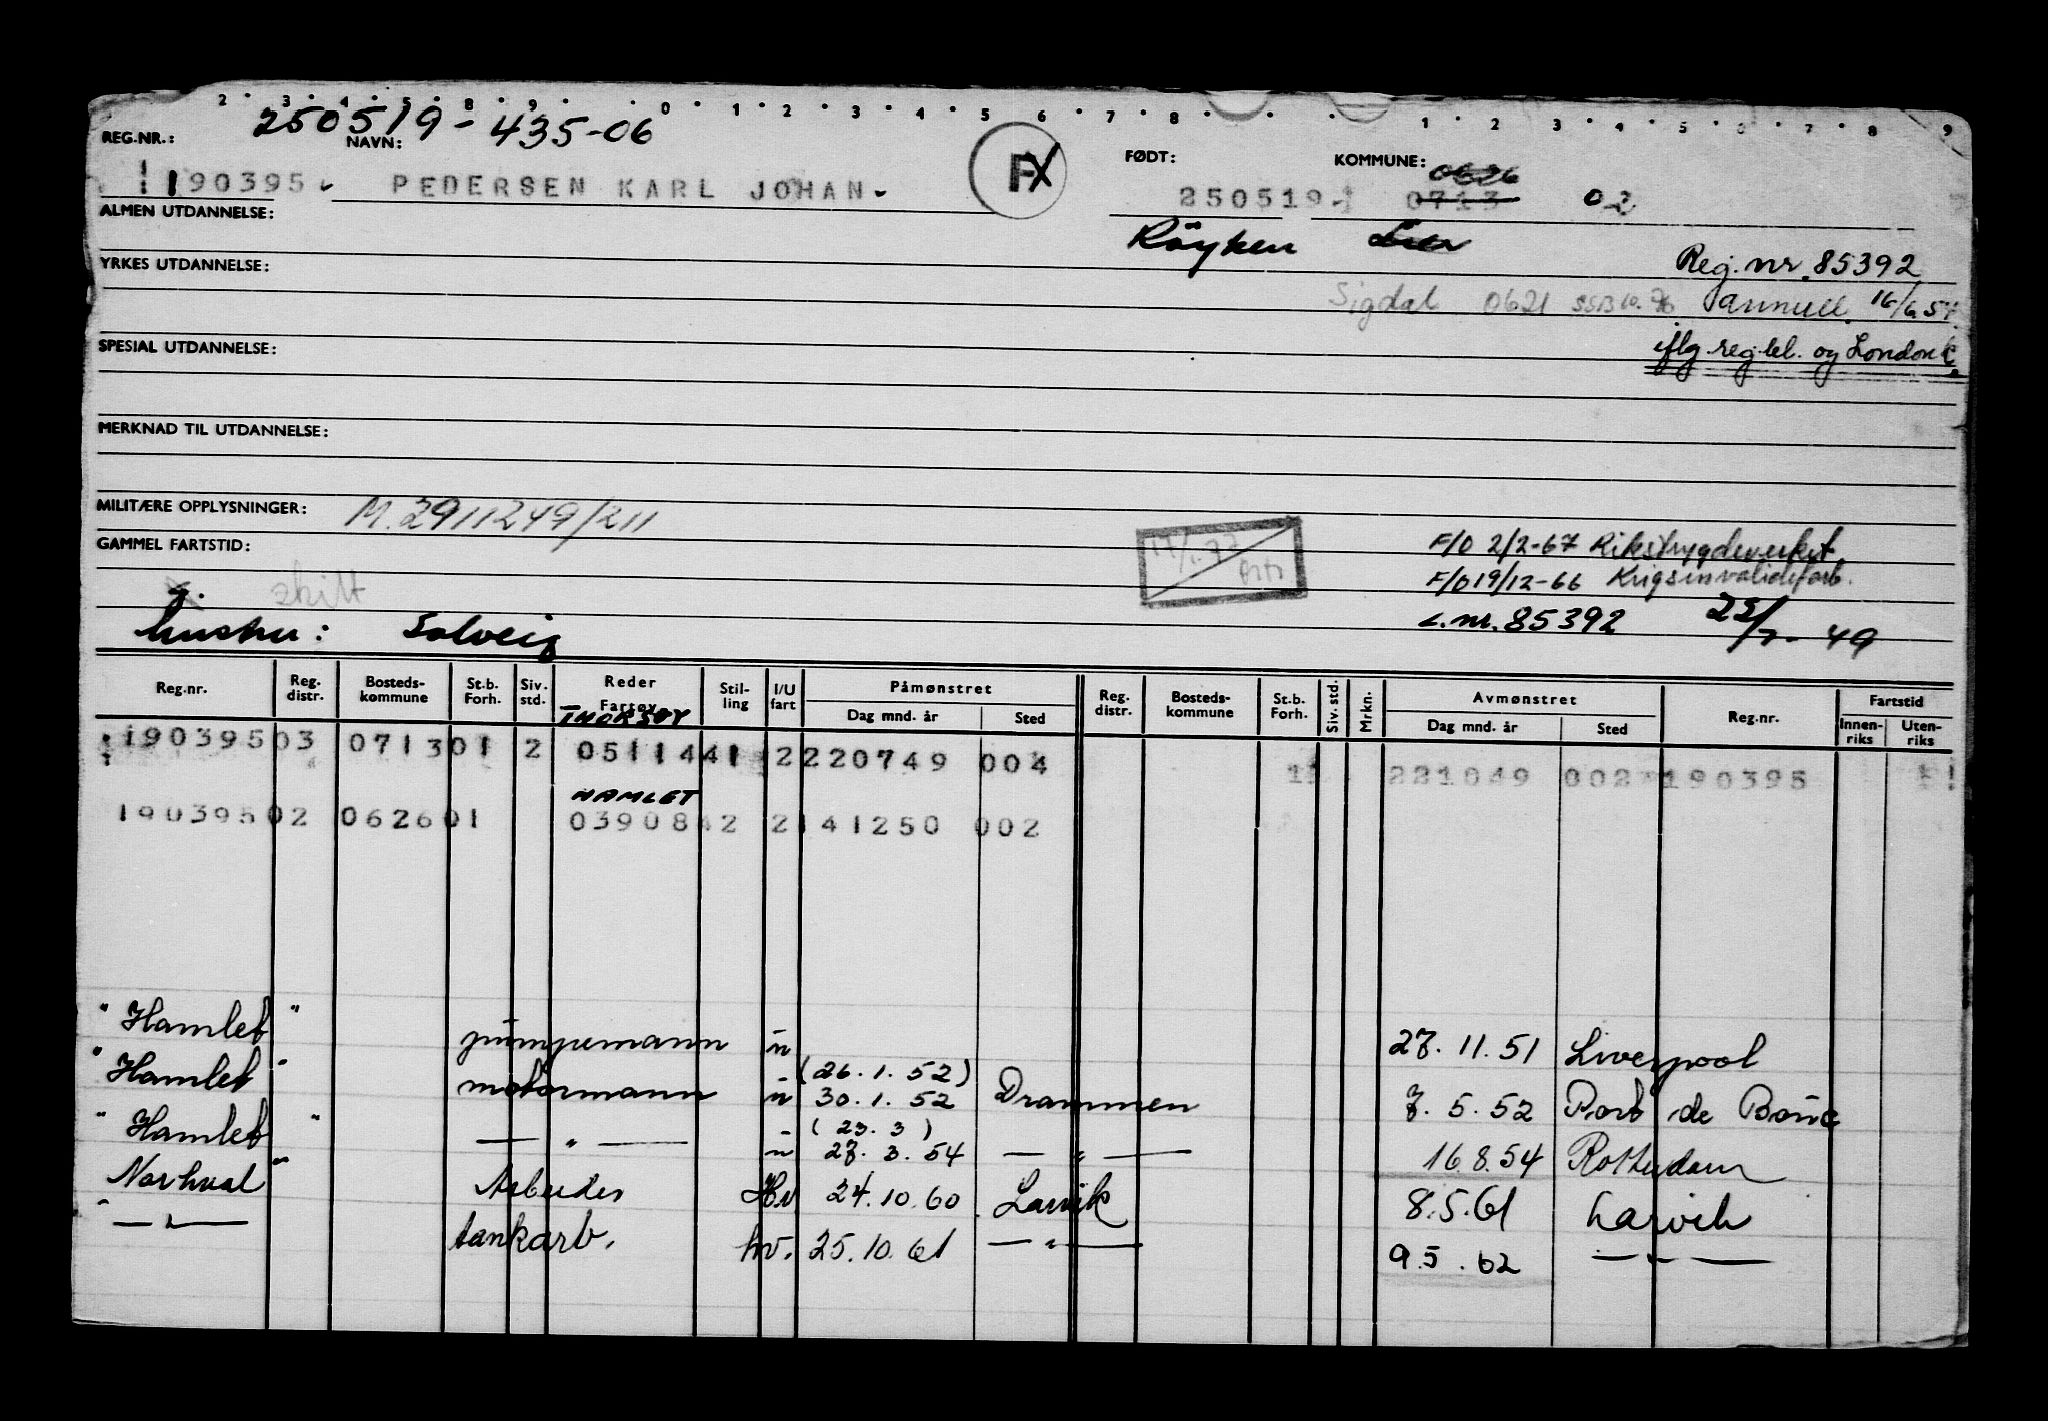 2 3 4 5 8 9 0 1 2 3 4 5 6 7 8 1 2 3 4 5 6 7 8 9
250519-435-06
REG.NR.: NAVN: FØDT: KOMMUNE: 0626
190395 PEDERSEN KARL JOHAN FX 250519 0713 02
ALMEN UTDANNELSE: Röyken Lier
YRKES UTDANNELSE: Reg. nr. 85392
Sigdal 0621 annull. 16/6 54
SPESIAL UTDANNELSE: iflg. reg.tel. og London k.
MERKNAD TIL UTDANNELSE:
MILITÆRE OPPLYSNINGER: M. 2911249/211
GAMMEL FARTSTID: F/O 2/2-67 Rikstrygdeverket
skilt F/O 19/12-66 Krigsinvalideforb.
hustru: Solveig L.nr. 85392 25/7-49
Reg.nr. Reg. distr. Bosteds-kommune St.b. Forh. Siv. std. Reder Fartøy Stil-ling I/U fart Påmønstret Dag mnd. år Sted Reg. distr. Bosteds-kommune St.b. Forh. Siv. std. Mrkn. Avmønstret Dag mnd. år Sted Reg.nr. Fartstid Innen-riks Uten-riks
THORSØY
190395 03 0713 01 2 05114 41 2 220749 004 11 221049 002 190395
HAMLET
190395 02 0626 01 03908 42 2 141250 002
"Hamlet" pumpemann u 27. 11. 51 Liverpool
(26. 1. 52)
"Hamlet" motormann u 30. 1. 52 Drammen 7. 5. 52 Port de Bouc
(23. 3)
"Hamlet" — " — u 27. 3. 54 — " — 16.8.54 Rotterdam
"Norhval" Arbeider Hv 24. 10. 60 Larvik 8.5.61 Larvik
— " — tankarb. hv. 25. 10. 61 — " — 9.5.62 — " —